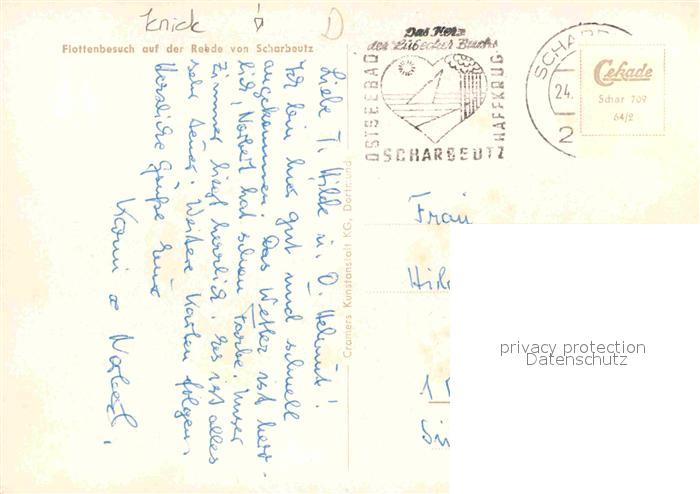 Knick
D
Flottenbesuch auf der Reede von Scharbeutz
Das Herz
der Lübecker Bucht
OSTSEEBAD
HAFFKRUG
SCHARBEUTZ
SCHARB
24.
2
Cekade
Schar 709
64/2
Liebe T. Hilde u. O. Helmut!
Ich bin hier gut und schnell
angekommen. Das Wetter ist herr-
lich, Norbert hat schon Farbe. Unser
Zimmer liegt herrlich. Es ist alles
sehr teuer. Weitere Karten folgen.
Herzliche Grüße Eure
Norbert.
Cramers Kunstanstalt KG, Dortmund
Frau
Hil
1
privacy protection
Datenschutz